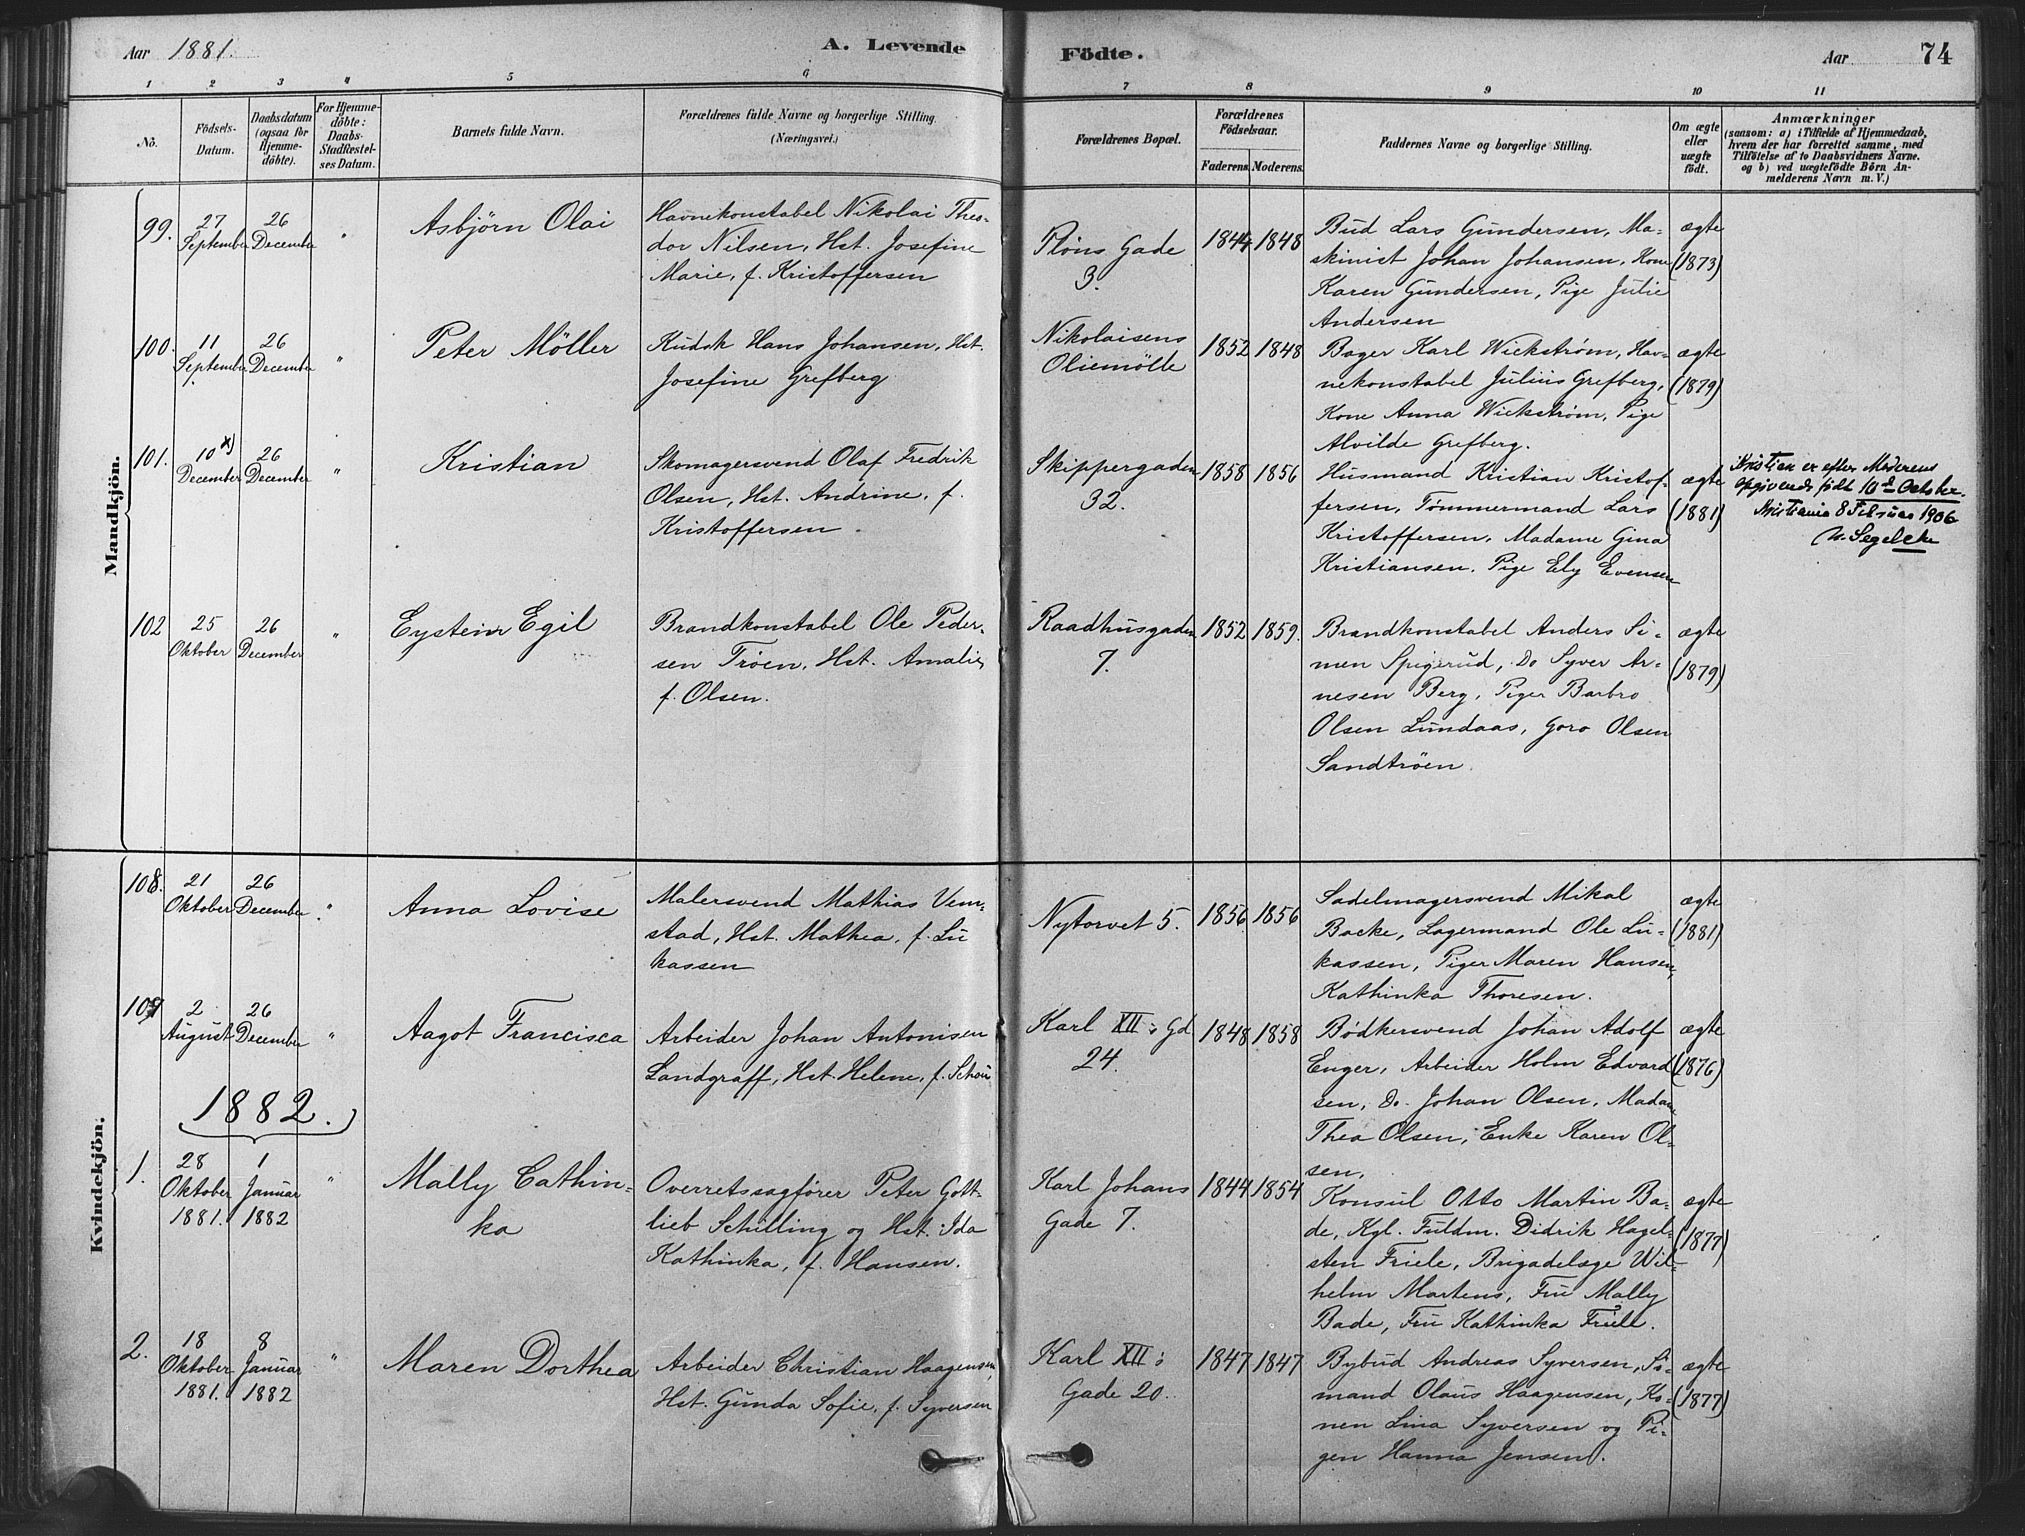 Aar 1881.
A. Levende
Födte.
Aar
74
1 2 3 4 5 6 7 8 9 10 11
No.
Födsels-
Datum.
Daabsdatum
(ogsaa for
Hjemme-
döbte).
For Hjemme-
döbte:
Daabs-
Stadfæstel-
ses Datum.
Barnets fulde Navn.
Forældrenes fulde Navne og borgerlige Stilling.
(Næringsvei.)
Forældrenes Bopæl.
Forældrenes
Födselsaar.
Faderens. Moderens.
Faddernes Navne og borgerlige Stilling.
Om ægte
eller
uægte
födt.
Anmærkninger
(saasom: a) i Tilfælde af Hjemmedaab,
hvem der har forrettet samme, med
Tilföielse af to Daabsvidners Navne.
og b) ved uægtefödte Börn An-
melderens Navn m. V.)
Mandkjön.
99.
27
September
26
December
"
Asbjörn Olai
Havnekonstabel Nikolai Theo-
dor Nilsen, Hst. Josefine
Marie, f. Kristoffersen
Pløns Gade
3.
1844
1848
Bud Lars Gundersen, Ma-
skinist Johan Johansen, Kone
Karen Gundersen, Pige Julie
Andersen
ægte
(1873)
100.
11
September
26
December
"
Peter Möller
Kudsk Hans Johansen, Hst.
Josefine Grefberg
Nikolaisens
Oliemölle
1852
1848
Bager Karl Wickstrøm, Hav-
nekonstabel Julius Grefberg,
Kone Anna Wickstrøm, Pige
Alvilde Grefberg.
ægte
(1879)
101.
10 x)
December
26
December
"
Kristian
Skomagersvend Olaf Fredrik
Olsen, Hst. Andrine, f.
Kristoffersen
Skippergaden
32.
1858
1856
Husmand Kristian Kristof-
fersen, Tømmermand Lars
Kristoffersen, Madame Gina
Kristiansen, Pige Ely Evensen
ægte
(1881)
Kristian er efter Moderens
Opgivende født 10d October.
Kristiania 8 Februar 1906
N. Segelcke
102
25
Oktober
26
December
"
Eystein Egil
Brandkonstabel Ole Peder-
sen Tröen, Hst. Amalie,
f. Olsen.
Raadhusgaden
7.
1852
1859.
Brandkonstabel Anders Si-
men Spigerud, Do Syver Ar-
nesen Berg, Piger Barbro
Olsen Lundaas, Goro Olsen
Sandtröen
ægte
(1879)
Kvindekjön.
108.
21
Oktober
26
December
"
Anna Lovise
Malersvend Mathias Vem-
stad, Hst. Mathea, f. Lu
kassen
Nytorvet 5.
1856
1856
Sadelmagersvend Mikal
Backe, Lagermand Ole Lu-
kassen, Piger Maren Hansen,
Kathinka Thoresen.
ægte
(1881)
109
2
August
26
December
"
Aagot Francisca
Arbeider Johan Antonisen
Landgraff, Hst. Helene, f. Schou
Karl XII: Gd
24.
1848
1858
Bødkersvend Johan Adolf
Enger, Arbeider Holm Edvard
sen, Do. Johan Olsen, Madam
Thea Olsen, Enke Karen Ol-
sen,
ægte
(1876)
1882.
1.
28
Oktober
1881.
1
Januar
1882
"
Mally Cathin-
ka
Overretssagfører Peter Gott-
lieb Schilling og Hst. Ida
Kathinka, f. Hansen.
Karl Johans
Gade 7.
1844
1854
Konsul Otto Martin Ba-
de, Kgl. Fuldm. Didrik Hagel-
sten Friele, Brigadelæge Wil-
helm Martens, Fru Mally
Bade, Fru Kathinka Friele.
ægte
(1877)
2.
18
Oktober
1881.
8
Januar
1882
"
Maren Dorthea
Arbeider Christian Haagensen,
Hst. Gunda Sofie, f. Syversen
Karl XII:
Gade 20.
1847
1847
Bybud Andreas Syversen, Sö-
mand Olaus Haagensen, Ko-
nen Lina Syversen og Pi-
gen Hanna Jensen.
ægte
(1877)